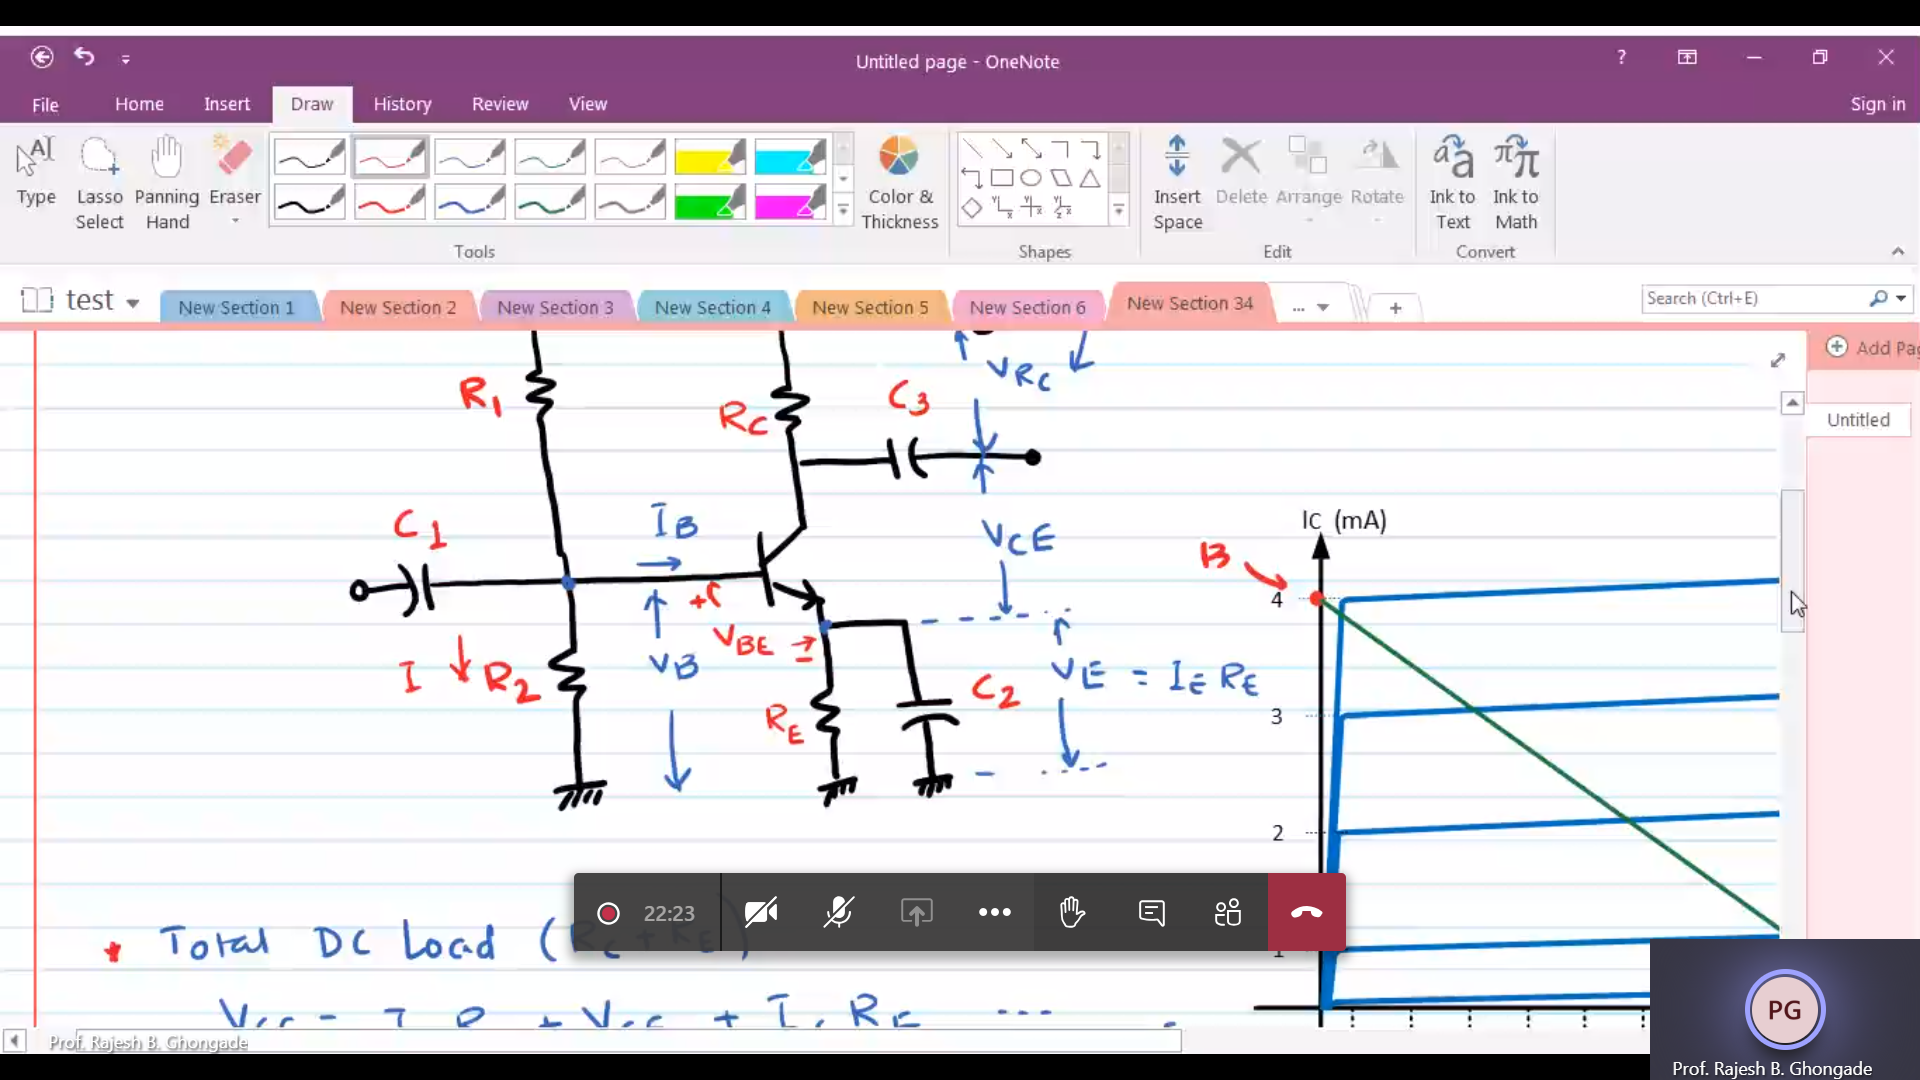 Untitled page - OneNote
?
File Home Insert Draw History Review View
Sign in
Type
Lasso Select
Panning Hand
Eraser
Color & Thickness
Insert Space
Delete
Arrange
Rotate
Ink to Text
Ink to Math
Tools
Shapes
Edit
Convert
test
New Section 1
New Section 2
New Section 3
New Section 4
New Section 5
New Section 6
New Section 34
...
+
Search (Ctrl+E)
Add Pag
Untitled
R1
RC
C3
VRC
C1
IB
VCE
VBE
+
-
VB
I
R2
RE
C2
VE = IE RE
B
IC (mA)
4
3
2
1
* Total DC Load (RC+RE)
22:23
PG
Prof. Rajesh B. Ghongade
Prof. Rajesh B. Ghongade